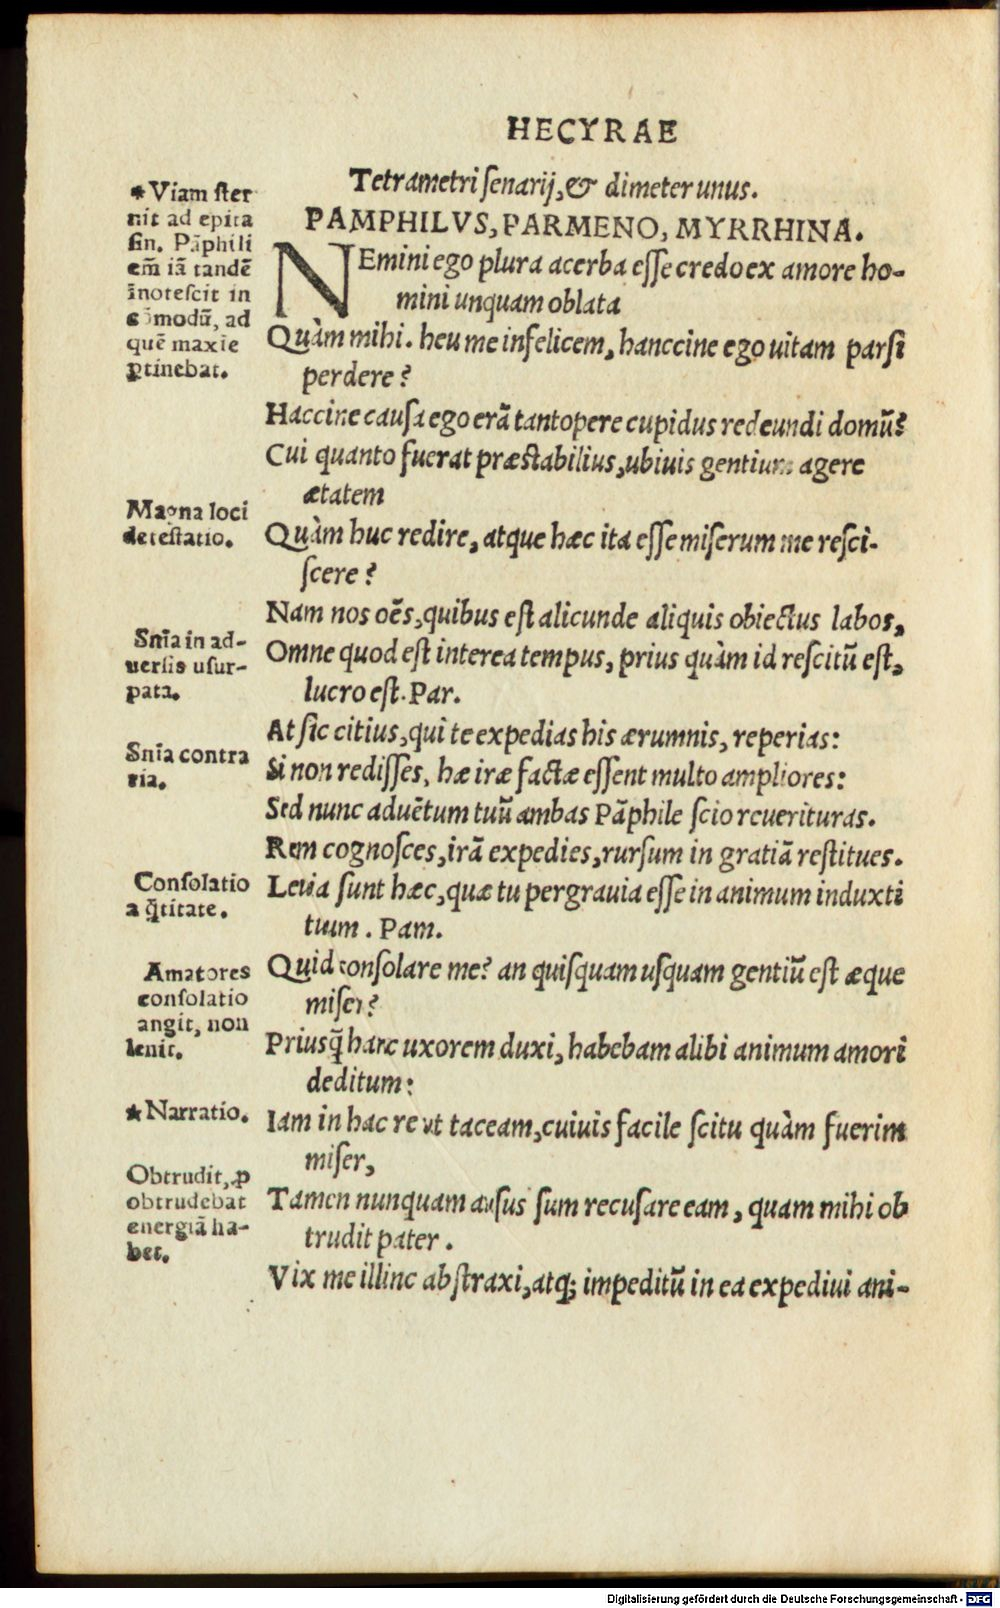 HECYRAE
Tetrametri senarij, & dimeter unus.
PAMPHILVS, PARMENO, MYRRHINA.
NEmini ego plura acerba esse credo ex amore ho-
mini unquam oblata
Quàm mihi. heu me infelicem, hanccine ego uitam parsi
perdere?
Haccine causa ego erã tantopere cupidus redeundi domũ?
Cui quanto fuerat præstabilius, ubiuis gentium agere
ætatem
Quàm huc redire, atque hæc ita esse miserum me resci-
scere?
Nam nos oẽs, quibus est alicunde aliquis obiectus labos,
Omne quod est interea tempus, prius quàm id rescitũ est,
lucro est. Par.
At sic citius, qui te expedias his ærumnis, reperias:
Si non redisses, hæ iræ factæ essent multo ampliores:
Sed nunc aduẽtum tuũ ambas Pãphile scio reuerituras.
Rem cognosces, irã expedies, rursum in gratiã restitues.
Leuia sunt hæc, quæ tu pergrauia esse in animum induxti
tuum. Pam.
Quid consolare me? an quisquam usquam gentiũ est æque
miser?
Priusq̃ hanc uxorem duxi, habebam alibi animum amori
deditum:
Iam in hac re ut taceam, cuiuis facile scitu quàm fuerim
miser,
Tamen nunquam ausus sum recusare eam, quam mihi ob
trudit pater.
Vix me illinc abstraxi, atq; impeditũ in ea expediui ani-
* Viam ster
nit ad epita
sin. Pãphili
em̃ iã tandẽ
ĩnotescit in
cõmodũ, ad
quẽ maxie
ꝑtinebat.
Magna loci
detestatio.
Snĩa in ad-
uersis usur-
pata.
Snĩa contra
ria.
Consolatio
a q̃titate.
Amatores
consolatio
angit, non
lenit.
* Narratio.
Obtrudit, ꝓ
obtrudebat
energiã ha-
bet.
Digitalisierung gefördert durch die Deutsche Forschungsgemeinschaft - DFG